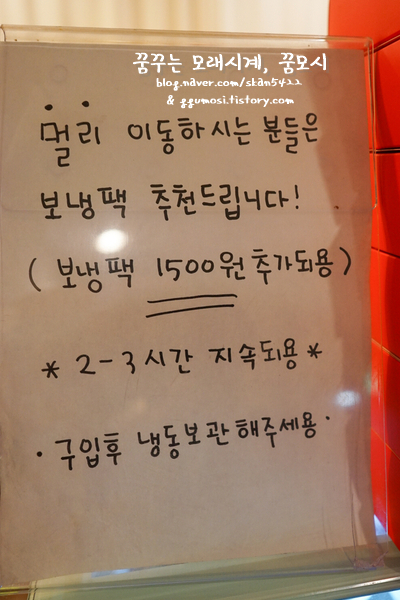 꿈꾸는 모래시계, 꿈모시
blog.naver.com/skan5422
& ggumosi.tistory.com
멀리 이동하시는 분들은
보냉팩 추천드립니다!
( 보냉팩 1500원 추가되용 )
* 2-3시간 지속되용 *
· 구입후 냉동보관해주세용 ·